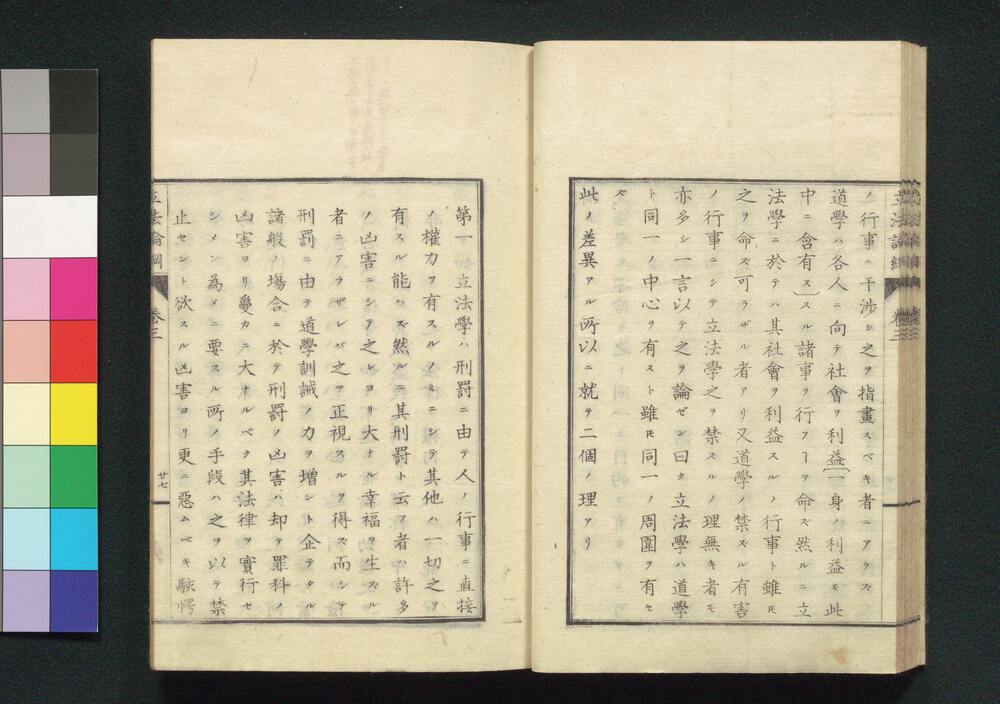 ノ行事ニ干渉シ之ヲ指畫スベキ者ニアラズ
道學ハ各人ニ向テ社會ヲ利益〔一身ノ利益モ此
中ニ含有ス〕スル諸事ヲ行フヿヲ命ズ然ルニ立
法學ニ於テハ其社會ヲ利益スルノ行事ト雖𪜈
之ヲ命ズ可ラザル者アリ又道學ノ禁ズル有害
ノ行事ニシテ立法學之ヲ禁スルノ理無キ者モ
亦多シ一言以テ之ヲ論ゼン曰ク立法學ハ道學
ト同一ノ中心ヲ有スト雖𪜈同一ノ周圍ヲ有セ
ズ
此ノ差異アル所以ニ就テ二個ノ理アリ
第一 立法學ハ刑罰ニ由テ人ノ行事ニ直接
ノ權力ヲ有スルノミニシテ其他ハ一切之ヲ
有スル能ハズ然ルニ其刑罰ト云フ者ハ許多
ノ凶害ニシテ之レヨリ大ナル幸福ヲ生ズル
者ニアラザレバ之ヲ正視スルヲ得ズ而シテ
刑罰ニ由テ道學訓誡ノ力ヲ増シト企テタル
諸般ノ塲合ニ於テ刑罰ノ凶害ハ却テ罪科ノ
凶害ヨリ夐カニ大ナルベク其法律ヲ實行セ
シメン為メニ要スル所ノ手段ハ之ヲ以テ禁
止セント欲スル凶害ヨリ更ニ惡ムベキ駭愕
立法論綱 卷三 廿七